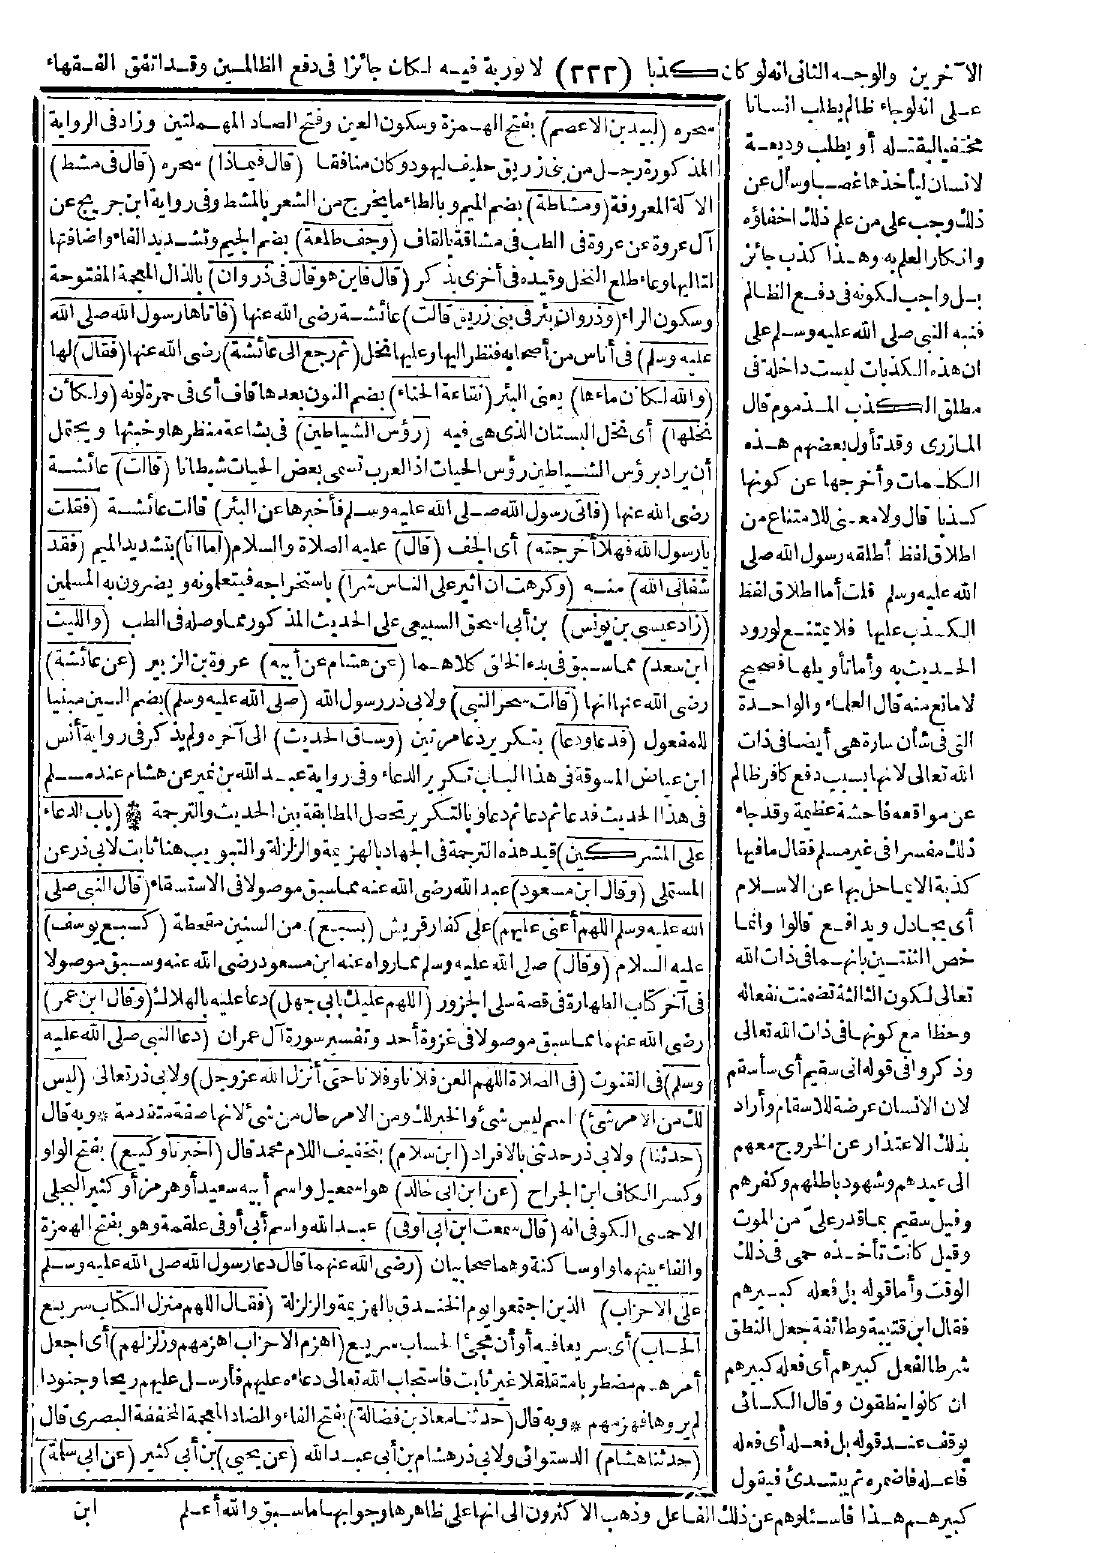 الآخرين والوجه الثانى انه لو كان كذبا (٢٢٢) لا تورية فيه لكان جائزا فى دفع الظالمين وقد اتفق الفقهاء
على انه لو جاء ظالم يطلب انسانا
مختفيا ليقتله أو يطلب وديعة
لانسان ليأخذها غصبا وسأل عن
ذلك وجب على من علم ذلك اخفاؤه
وانكار العلم به وهذا كذب جائز
بل واجب لكونه فى دفع الظالم
فنبه النبى صلى الله عليه وسلم على
ان هذه الكذبات ليست داخلة فى
مطلق الكذب المذموم قال
المازرى وقد تأول بعضهم هذه
الكلمات وأخرجها عن كونها
كذبا قال ولا معنى للامتناع من
اطلاق لفظ أطلقه رسول الله صلى
الله عليه وسلم قلت أما اطلاق لفظ
الكذب عليها فلا يمتنع لورود
الحديث به وأما تأويلها فصحيح
لا مانع منه قال العلماء والواحدة
التى فى شأن سارة هى أيضا فى ذات
الله تعالى لانها بسبب دفع كافر ظالم
عن مواقعه فاحشة عظيمة وقد جاء
ذلك مفسرا فى غير مسلم فقال ما فيها
كذبة الا بماحل بها عن الاسلام
أى يجادل ويدافع قالوا وانما
خص الثنتين بانهما فى ذات الله
تعالى لكون الثالثة تضمنت نفعا له
وحظا مع كونها فى ذات الله تعالى
وذكروا فى قوله انى سقيم أى سأسقم
لان الانسان عرضة للاسقام وأراد
بذلك الاعتذار عن الخروج معهم
الى عيدهم وشهود باطلهم وكفرهم
وقيل سقيم بما قدر علىّ من الموت
وقيل كانت تأخذه حمى فى ذلك
الوقت وأما قوله بل فعله كبيرهم
فقال ابن قتيبة وطائفة جعل النطق
شرطا لفعل كبيرهم أى فعله كبيرهم
ان كانوا ينطقون وقال الكسائى
يوقف عند قوله بل فعله أى فعله
فاعله فاضمره ثم يبتدئ فيقول
كبيرهم هذا فاسئلوهم عن ذلك الفاعل وذهب الاكثرون الى انها على ظاهرها وجوابها ما سبق والله أعلم
سحره (لبيد بن الاعصم) بفتح الهمزة وسكون العين وفتح الصاد المهملتين وزاد فى الرواية
المذكورة رجل من بنى زريق حليف ليهود وكان منافقا (قال فيماذا) سحره (قال فى مشط)
الآلة المعروفة (ومشاطة) بضم الميم وبالطاء ما يخرج من الشعر بالمشط وفى رواية ابن جريج عن
آل عروة عن عروة فى الطب فى مشاقة بالقاف (وجف طلعة) بضم الجيم وتشديد الفاء واضافتها
لتاليها وعاء طلع النخل وقيده فى أخرى بذكر (قال فاين هو قال فى ذروان) بالذال المعجمة المفتوحة
وسكون الراء (وذروان بئر فى بنى زريق قالت) عائشة رضى الله عنها (فاتاها رسول الله صلى الله
عليه وسلم) فى أناس من أصحابه فنظر اليها وعليها نخل (ثم رجع الى عائشة) رضى الله عنها (فقال) لها
(والله لكان ماءها) يعنى البئر (نقاعة الحناء) بضم النون بعدها قاف أى فى حمرة لونه (ولكأن
نخلها) أى نخل البستان الذى هى فيه (رؤس الشياطين) فى بشاعة منظرها وخبثها ويحتمل
أن يراد برؤس الشياطين رؤس الحيات اذ العرب تسمى بعض الحيات شيطانا (قالت) عائشة
رضى الله عنها (فاتى رسول الله صلى الله عليه وسلم فأخبرها عن البئر) قالت عائشة (فقلت
يا رسول الله فهلا أخرجته) أى الجف (قال) عليه الصلاة والسلام (اما أنا) بتشديد الميم (فقد
شفانى الله) منه (وكرهت ان اثير على الناس شرا) باستخراجه فيتعلمونه ويضرون به المسلمين
(زاد عيسى بن يونس) بن أبى اسحق السبيعى على الحديث المذكور مما وصله فى الطب (والليث
ابن سعد) مما سبق فى بدء الخلق كلاهما (عن هشام عن أبيه) عروة بن الزبير (عن عائشة)
رضى الله عنها انها (قالت سحر النبى) ولابى ذر رسول الله (صلى الله عليه وسلم) بضم السين مبنيا
للمفعول (فدعا ودعا) بتكرير دعا مرتين (وساق الحديث) الى آخره ولم يذكر فى رواية أنس
ابن عياض المسوقة فى هذا الباب تكرير الدعاء وفى رواية عبد الله بن نمير عن هشام عند مسلم
فى هذا الحديث فدعا ثم دعا ثم دعا وبالتكرير تحصل المطابقة بين الحديث والترجمة * (باب الدعاء
على المشركين) قيد هذه الترجمة فى الجهاد بالهزيمة والزلزلة والتبويب هنا ثابت لابى ذر عن
المستملى (وقال ابن مسعود) عبد الله رضى الله عنه مما سبق موصولا فى الاستسقاء (قال النبى صلى
الله عليه وسلم اللهم أعنى عليهم) على كفار قريش (بسبع) من السنين مقحطة (كسبع يوسف)
عليه السلام (وقال) صلى الله عليه وسلم مما رواه عنه ابن مسعود رضى الله عنه وسبق موصولا
فى آخر كتاب الطهارة فى قصة سلى الجزور (اللهم عليك بابى جهل) دعا عليه بالهلاك (وقال ابن عمر)
رضى الله عنهما مما سبق موصولا فى غزوة أحد وتفسير سورة آل عمران (دعا النبى صلى الله عليه
وسلم) فى القنوت (فى الصلاة اللهم العن فلانا وفلانا حتى أنزل الله عز وجل) ولابى ذر تعالى (ليس
لك من الامر شئ) اسم ليس شئ والخبر لك ومن الامر حال من شئ لانها صفة متقدمة * وبه قال
(حدثنا) ولابى ذر حدثنى بالافراد (ابن سلام) بتخفيف اللام محمد قال (اخبرنا وكيع) بفتح الواو
وكسر الكاف ابن الجراح (عن ابن ابى خالد) هو اسمعيل واسم أبيه سعيد أو هرمز أو كثير البجلى
الاحمسى الكوفى انه (قال سمعت ابن ابى اوفى) عبد الله واسم أبى أوفى علقمة وهو بفتح الهمزة
والفاء بينهما واو ساكنة وهما صحابيان (رضى الله عنهما قال دعا رسول الله صلى الله عليه وسلم
على الاحزاب) الذين اجتمعوا يوم الخندق بالهزيمة والزلزلة (فقال اللهم منزل الكتاب سريع
الحساب) أى سريعا فيه أو أن مجئ الحساب سريع (اهزم الاحزاب اهزمهم وزلزلهم) أى اجعل
أمرهم مضطربا متقلقلا غير ثابت فاستجاب الله تعالى دعاءه عليهم فأرسل عليهم ريحا وجنودا
لم يروها فهزمهم * وبه قال (حدثنا معاذ بن فضالة) بفتح الفاء والضاد المعجمة المخففة البصرى قال
(حدثنا هشام) الدستوائى ولابى ذر هشام بن أبى عبد الله (عن يحيى) بن أبى كثير (عن ابى سلمة)
ابن